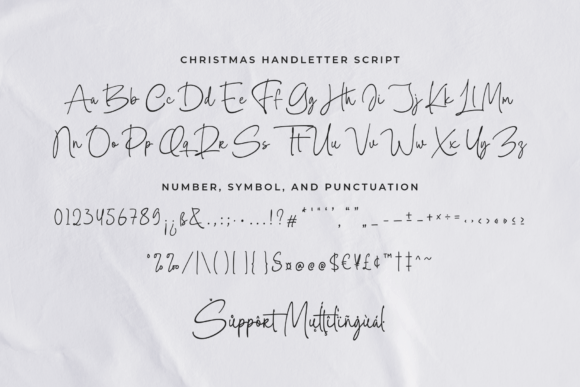 CHRISTMAS HANDLETTER SCRIPT
Aa Bb Cc Dd Ee Ff Gg Hh Ii Jj Kk Ll Mm
Nn Oo Pp Qq Rr Ss Tt Uu Vv Ww Xx Yy Zz
NUMBER, SYMBOL, AND PUNCTUATION
0123456789¡¿ß&.,:;-·...!?#
%‰/|\()[]{}§¤@©®$€¥£¢™†‡^~
Support Multilingual